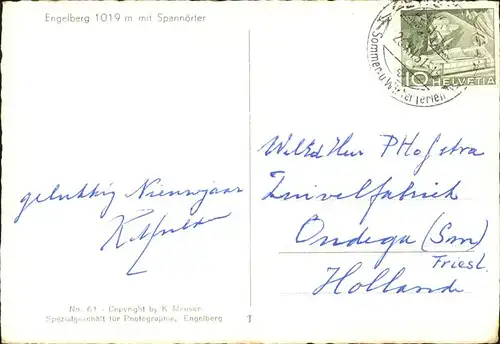 Engelberg 1019 m mit Spannörter
10 HELVETIA
Sommer- u. Winterferien
WelEd Heer P Hofstra
Zuivelfabriek
Ondega (Sm)
Friesl.
Holland
gelukkig Nieuwjaar
No. 61 - Copyright by K. Meuser
Spezialgeschäft für Photographie, Engelberg